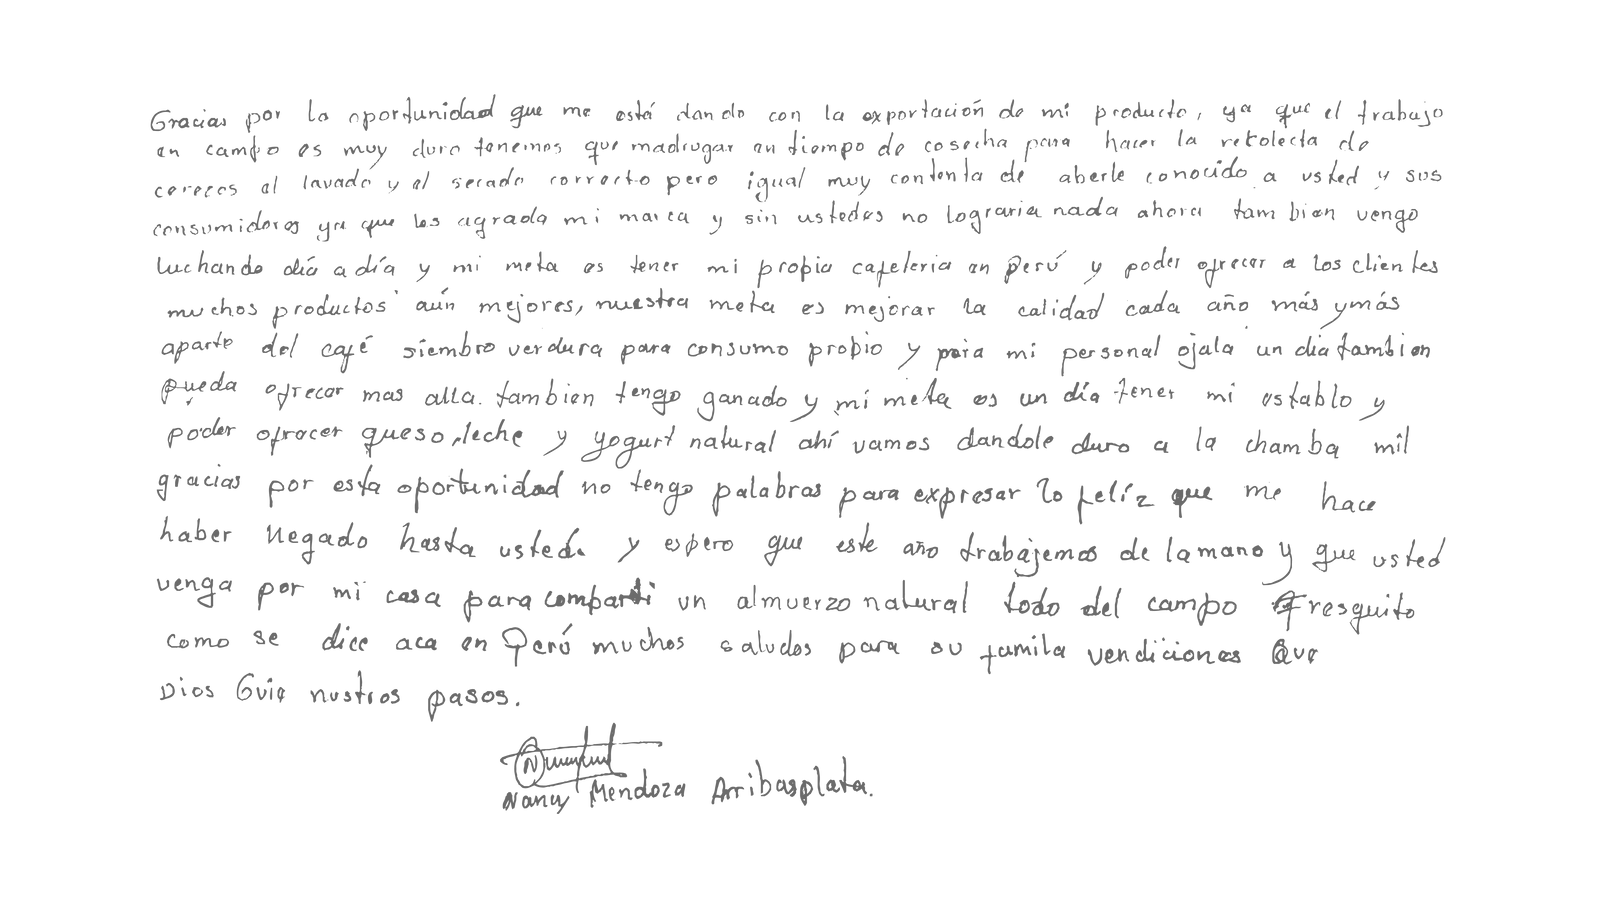 Gracias por la oportunidad que me está dando con la exportación de mi producto, ya que el trabajo
en campo es muy duro tenemos que madrugar en tiempo de cosecha para hacer la rekolecta de
cerezos al lavado y el secado correcto pero igual muy contenta de aberle conocido a usted y sus
consumidores ya que les agrada mi marca y sin ustedes no lograria nada ahora tambien vengo
luchando día a día y mi meta es tener mi propia cafeteria en Perú y poder ofrecer a los clientes
muchos productos aún mejores, nuestra meta es mejorar la calidad cada año más y más
aparte del café siembro verdura para consumo propio y para mi personal ojala un dia tambien
pueda ofrecer mas alla. tambien tengo ganado y mi meta es un día tener mi establo y
poder ofrecer queso, leche y yogurt natural ahí vamos dandole duro a la chamba mil
gracias por esta oportunidad no tengo palabras para expresar lo felíz que me hace
haber llegado hasta usted. y espero que este año trabajemos de la mano y que usted
venga por mi casa para comparti un almuerzo natural todo del campo fresquito
como se dice aca en Perú muchos saludos para su familia vendiciones Que
Dios Guie nustros pasos.
Nancy Mendoza Arribasplata.